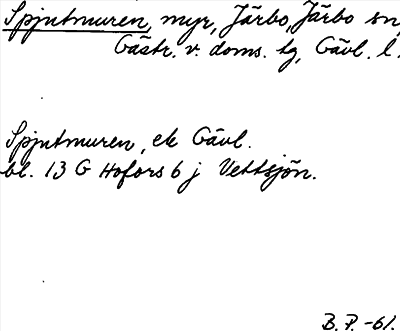 Spjutmuren, myr, Järbo, Järbo sn,
Gästr. v. doms. tg, Gävl. l.
Spjutmuren, ek Gävl.
bl. 13 G Hofors 6 j Vettsjön.
B. P. -61.